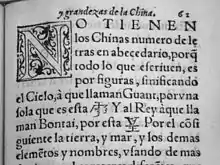 y grandezas de la China. 62
NO TIENEN
los Chinas numero de le
tras en abecedario, porq̃
todo lo que escriuen, es
por figuras, sinificando
el Cielo, à que llaman Guant, por vna
sola que es esta Y al Rey à que lla
man Bontai, por esta Por el cõsi
guiente la tierra, y mar, y los demas
elemẽtos y nombres, vsando de mas